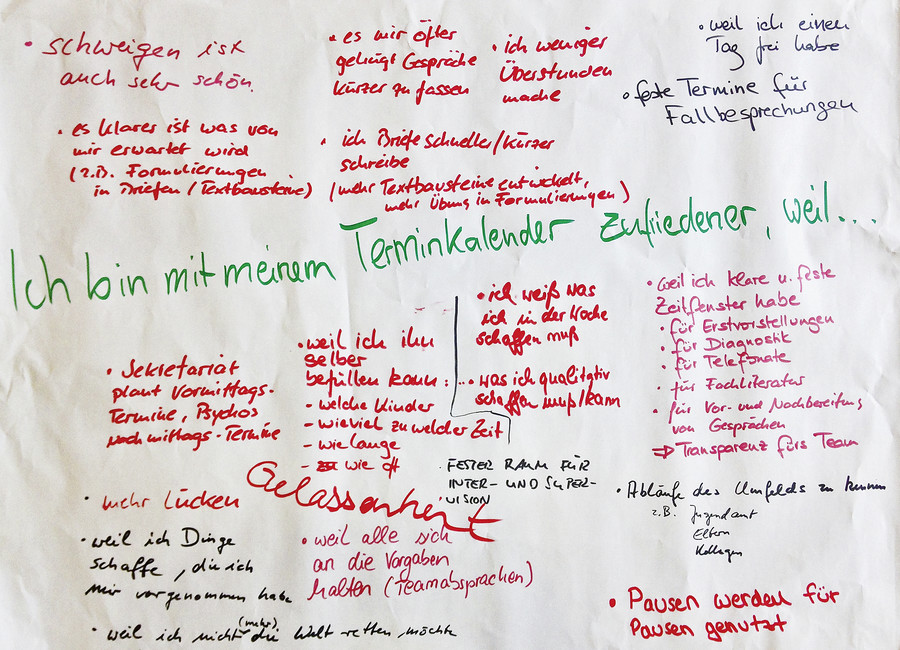 • schweigen ist
auch sehr schön.
• es mir öfter
gelingt Gespräche
kürzer zu fassen
• ich weniger
Überstunden
mache
• weil ich einen
Tag frei habe
• feste Termine für
Fallbesprechungen
• es klarer ist was von
mir erwartet wird
(z.B. Formulierungen
in Briefen / Textbausteine)
• ich Briefe schneller/kürzer
schreibe
(mehr Textbausteine entwickelt,
mehr Übung in Formulierungen)
Ich bin mit meinem Terminkalender zufriedener, weil...
• Sekretariat
plant Vormittags-
Termine, Psychos
nachmittags-Termine
• weil ich ihn
selber
befüllen kann:
- welche Kinder
- wieviel zu welcher Zeit
- wie lange
- wie oft
• ich weiß was
ich in der Woche
schaffen muß
... was ich qualitativ
schaffen muß/kann
• weil ich klare u. feste
Zeitfenster habe
• für Erstvorstellungen
• für Diagnostik
• für Telefonate
• für Fachliteratur
• für Vor- und Nachbereitung
von Gesprächen
⇒ Transparenz fürs Team
• FESTER RAUM FÜR
INTER- UND SUPER-
VISION
Gelassenheit
• mehr Lücken
• weil ich Dinge
schaffe, die ich
mir vorgenommen habe
• weil alle sich
an die Vorgaben
halten (Teamabsprachen)
• Abläufe des Umfelds zu kennen
z.B. Jugendamt
Eltern
Kollegen
• weil ich nicht (mehr) die Welt retten möchte
• Pausen werden für
Pausen genutzt